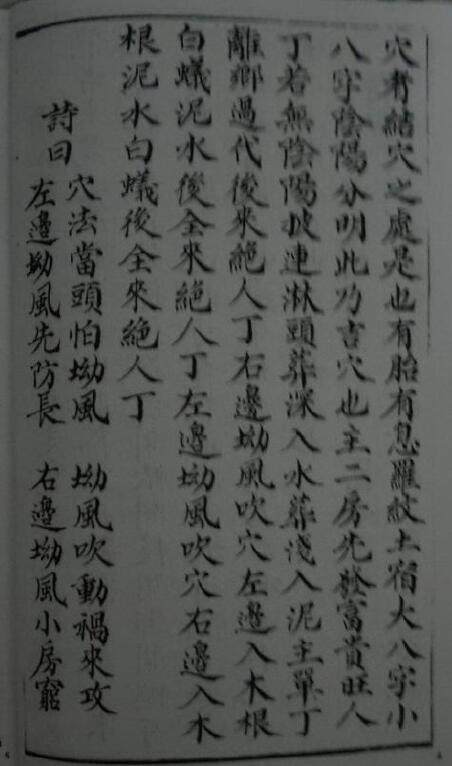 穴者結穴之處是也有胎有息羅紋土宿大八字小
八字陰陽分明此乃吉穴也主二房先發富貴旺人
丁若無陰陽披連淋頭葬深入水葬淺入泥主單丁
離鄉過代後來絕人丁右邊坳風吹穴左邊入木根
白蟻泥水後全來絕人丁左邊坳風吹穴右邊入木
根泥水白蟻後全來絕人丁
詩曰
穴法當頭怕坳風 坳風吹動禍來攻
左邊坳風先防長 右邊坳風小房窮